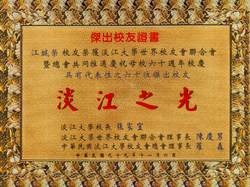 傑出校友證書
江誠榮校友榮獲淡江大學世界校友會聯合會
暨總會共同推選慶祝母校六十週年校慶
具有代表性之六十位傑出校友
淡江之光
淡江大學校長 張家宜
淡江大學世界校友會聯合會總會長 陳慶男
中華民國淡江大學校友總會理事長 羅森
中華民國九十九年十一月六日